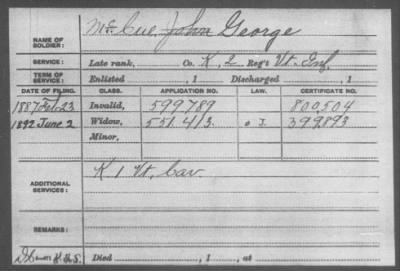 Mc Cue, John George
NAME OF SOLDIER:
SERVICE: Late rank, Co. K, 2 Reg't Vt. Inf.
TERM OF SERVICE: Enlisted , 1 Discharged , 1
DATE OF FILING. CLASS. APPLICATION NO. LAW. CERTIFICATE NO.
1887 Feb 23 Invalid, 599789 800,504
1892 June 2 Widow, 551.413. 399,893
Minor,
ADDITIONAL SERVICES: K 1 Vt. Cav.
REMARKS:
Died , 1 , at